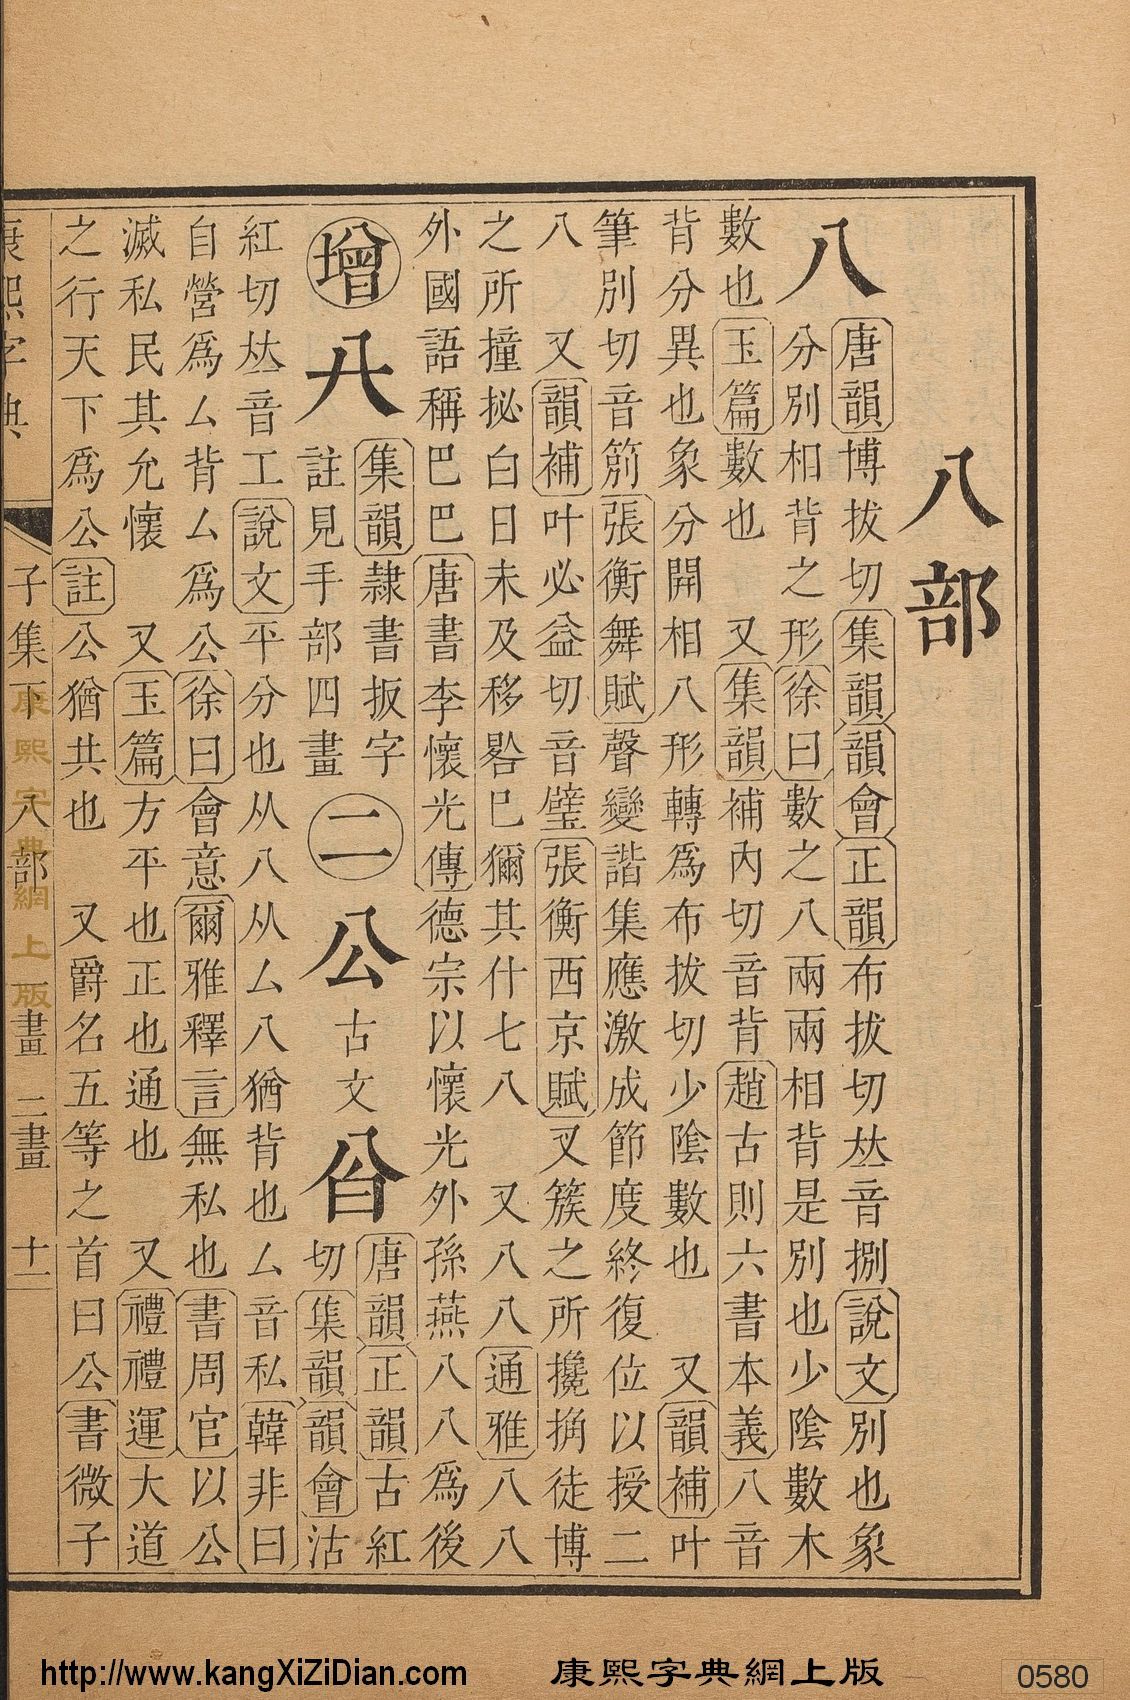 八部
八
唐韻博拔切集韻韻會正韻布拔切𠀤音捌說文別也象
分別相背之形徐曰數之八兩兩相背是別也少陰數木
數也玉篇數也　又集韻補內切音背趙古則六書本義八音
背分異也象分開相八形轉為布拔切少陰數也　又韻補叶
筆別切音𥬞張衡舞賦聲變諧集應激成節度終復位以授二
八　又韻補叶必益切音璧張衡西京賦叉簇之所攙捔徒博
之所撞拯白日未及移晷巳獮其什七八　又八八通雅八八
外國語稱巴巴唐書李懷光傳德宗以懷光外孫燕八八為後
增
𠔁
集韻隷書扳字
註見手部四畫
二
公
古文
㕣
唐韻正韻古紅
切集韻韻會沽
紅切𠀤音工說文平分也从八从厶八猶背也厶音私韓非曰
自營為厶背厶為公徐曰會意爾雅釋言無私也書周官以公
滅私民其允懷　又玉篇方平也正也通也　又禮禮運大道
之行天下為公註公猶共也　又爵名五等之首曰公書微子
康熙字典　子集下　八部　二畫　十一
康熙字典網上版
http://www.kangXiZiDian.com　康熙字典網上版　0580